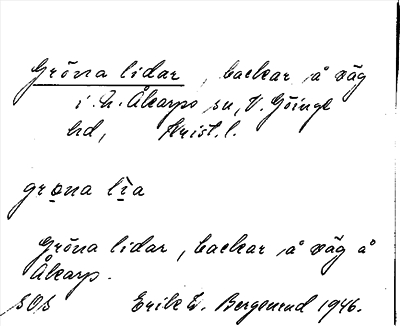 Gröna lidar, backar å väg
i N. Åkarps sn, V. Göinge
hd, Krist. l.
grøna lìa
Gröna lidar, backar å väg å
Åkarp.
SOS Erik W. Bergsund 1946.